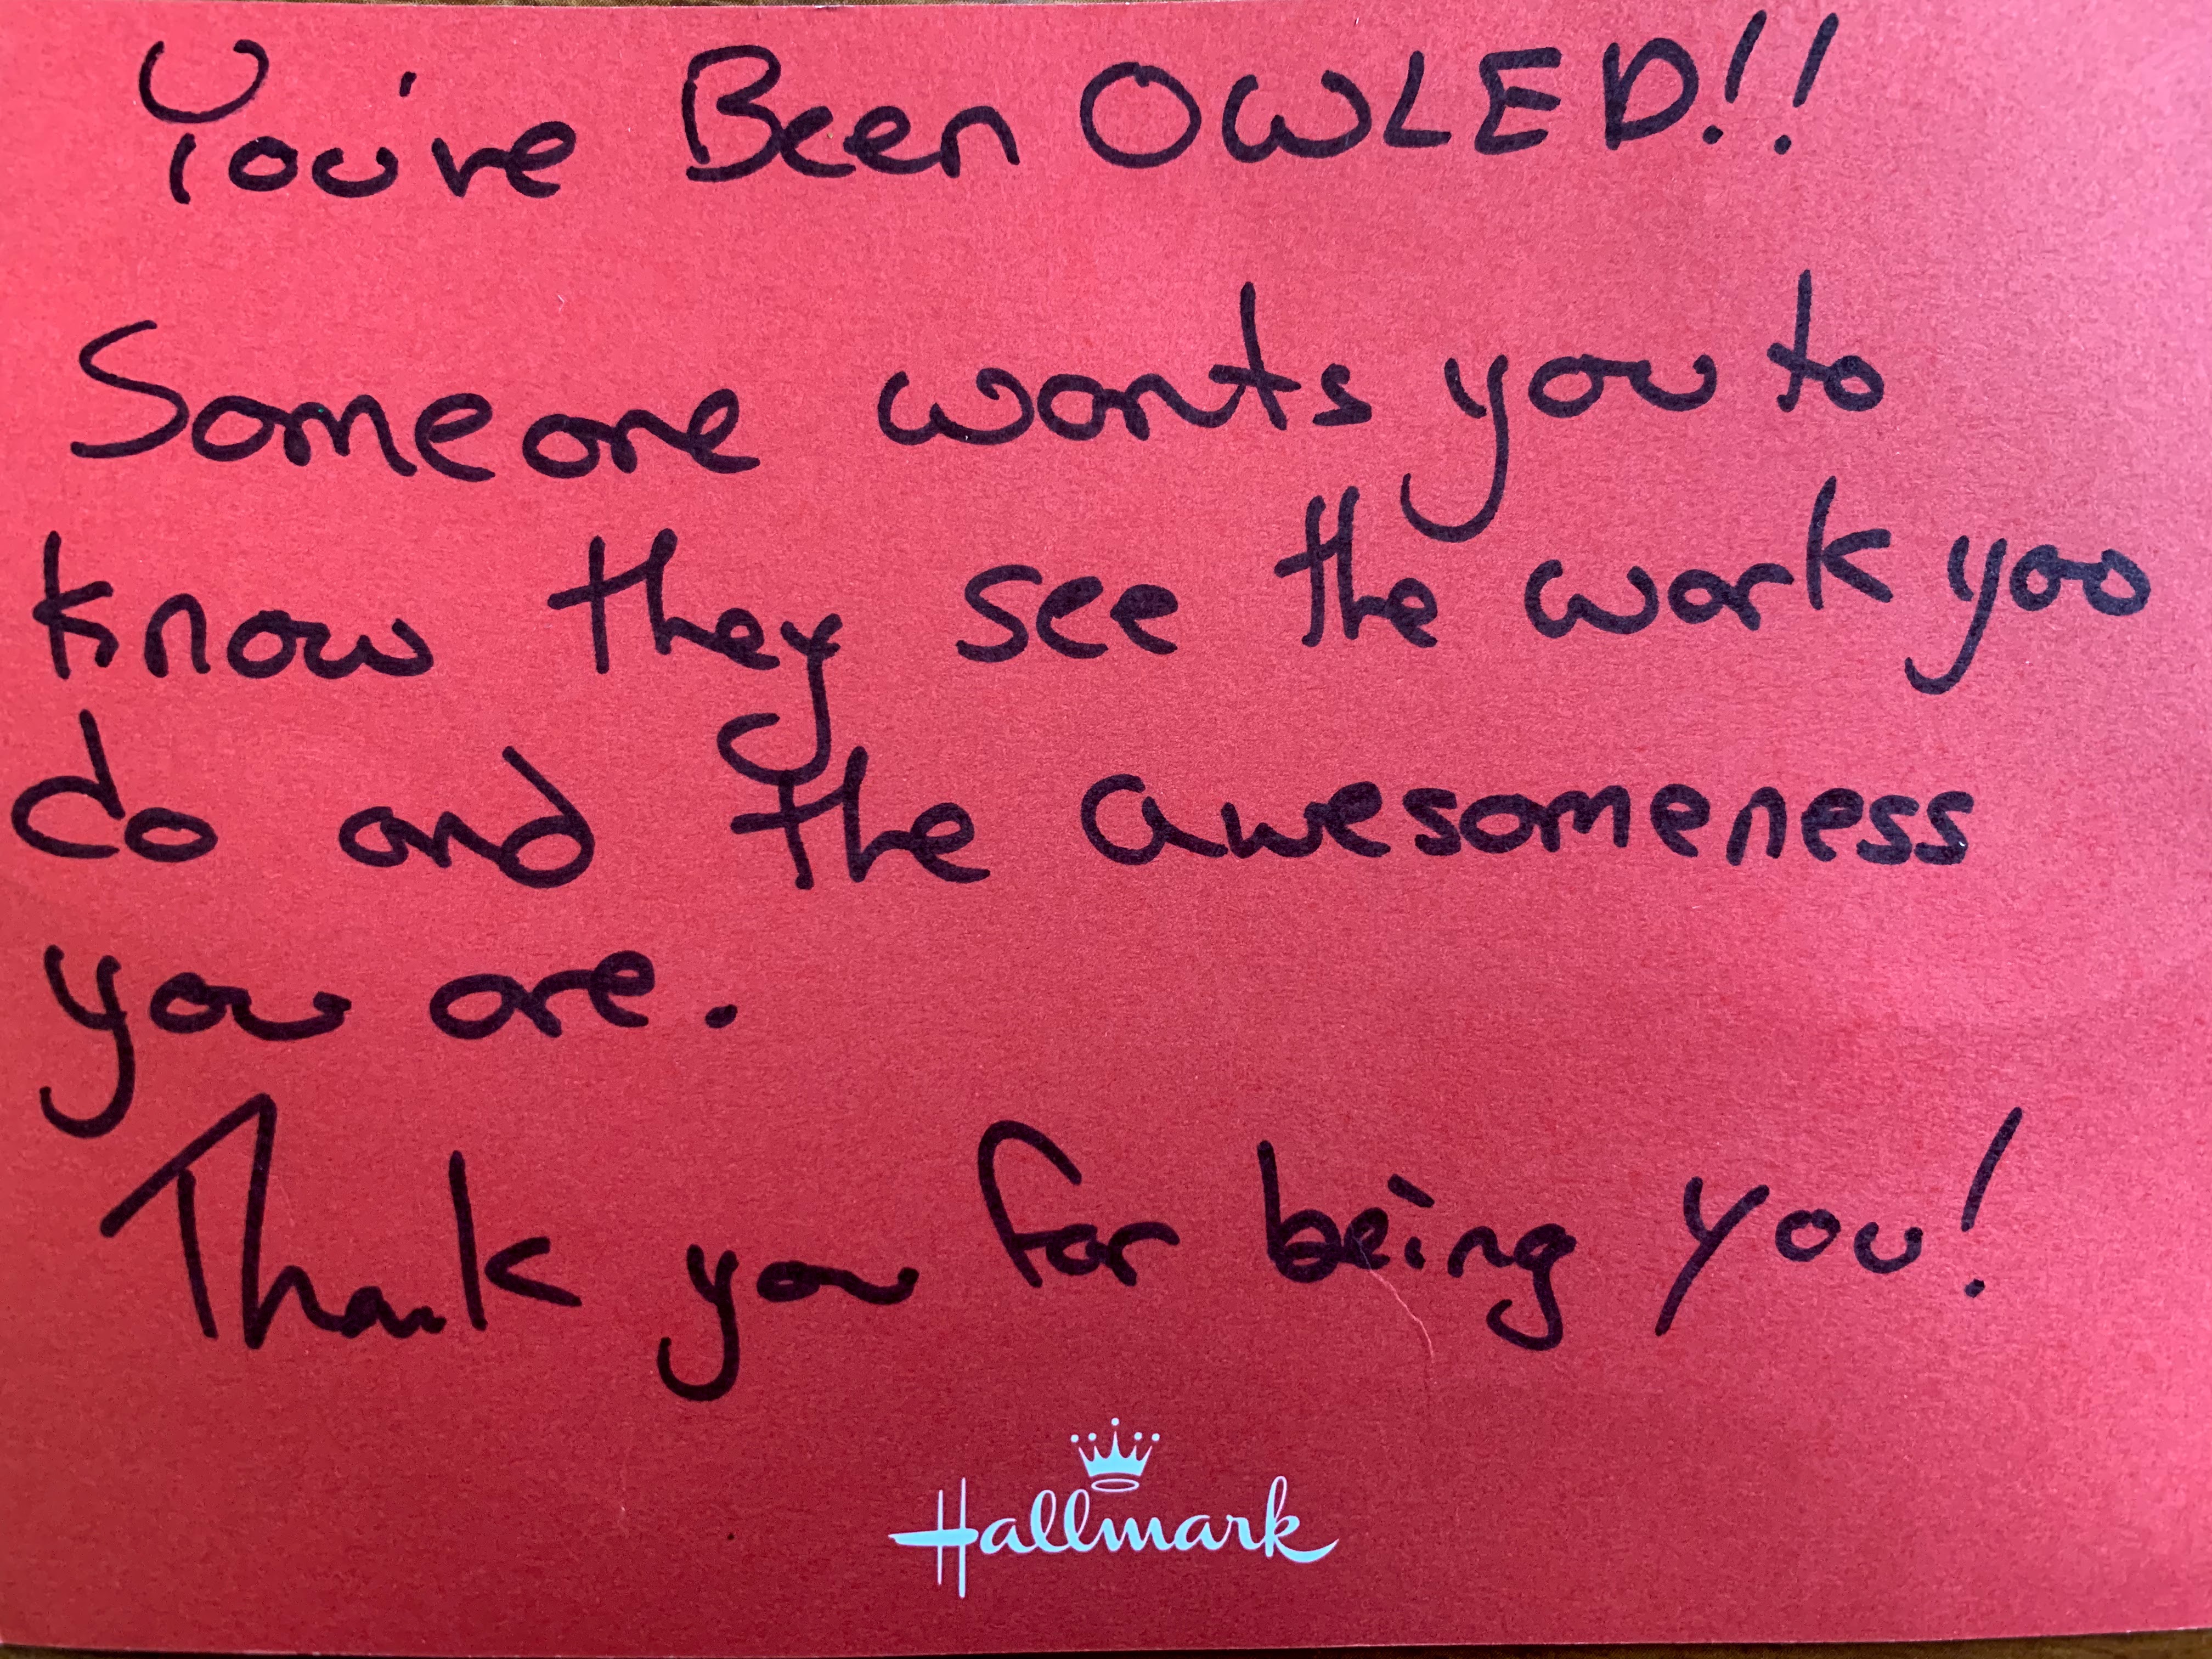 You've Been OWLED!!
Someone wants you to
know they see the work you
do and the awesomeness
you are.
Thank you for being you!
Hallmark